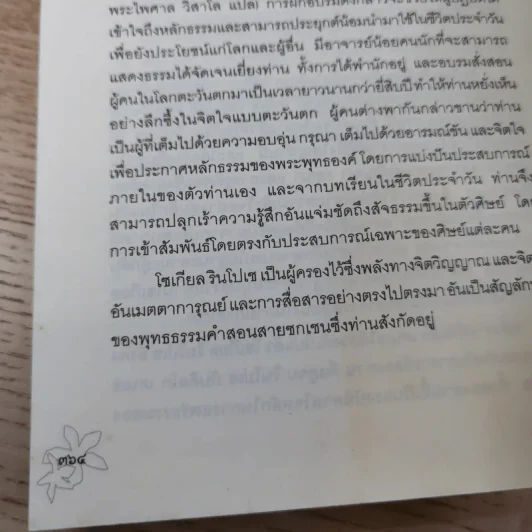 พระไพศาล วิสาโล แปล) การฝึกอบรมดังกล่าวจะช่วยให้ผู้ปฏิบัติ
เข้าใจถึงหลักธรรมและสามารถประยุกต์น้อมนำมาใช้ในชีวิตประจำวัน
เพื่อยังประโยชน์แก่โลกและผู้อื่น มีอาจารย์น้อยคนนักที่จะสามารถ
แสดงธรรมได้จัดเจนเยี่ยงท่าน ทั้งการได้พำนักอยู่ และอบรมสั่งสอน
ผู้คนในโลกตะวันตกมาเป็นเวลายาวนานกว่ายี่สิบปี ทำให้ท่านหยั่งเห็น
อย่างลึกซึ้งในจิตใจแบบตะวันตก ผู้คนต่างพากันกล่าวขานว่าท่าน
เป็นผู้ที่เต็มไปด้วยความอบอุ่น กรุณา เต็มไปด้วยอารมณ์ขัน และจิตใจ
เพื่อประกาศหลักธรรมของพระพุทธองค์ โดยการแบ่งปันประสบการณ์
ภายในของตัวท่านเอง และจากบทเรียนในชีวิตประจำวัน ท่านจึง
สามารถปลุกเร้าความรู้สึกอันแจ่มชัดถึงสัจธรรมขึ้นในตัวศิษย์ โดย
การเข้าสัมพันธ์โดยตรงกับประสบการณ์เฉพาะของศิษย์แต่ละคน
โซเกียล รินโปเช เป็นผู้ครองไว้ซึ่งพลังทางจิตวิญญาณ และจิต
อันเมตตาการุณย์ และการสื่อสารอย่างตรงไปตรงมา อันเป็นสัญลักษ
ของพุทธธรรมคำสอนสายซกเชนซึ่งท่านสังกัดอยู่
๓๖๔